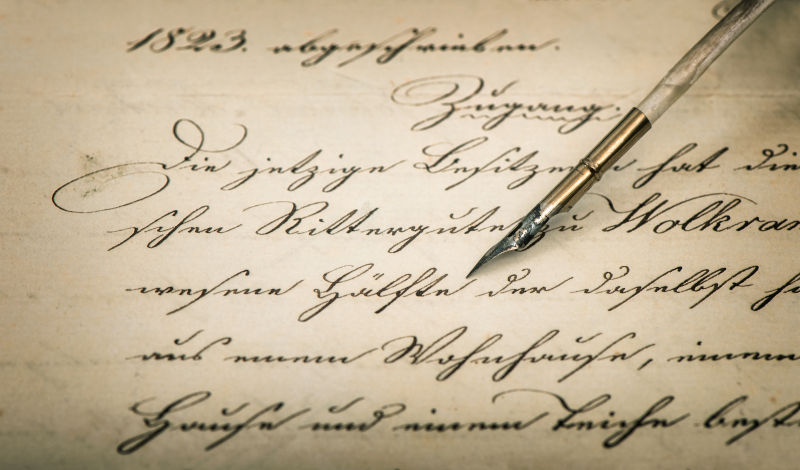 1823. abgeschrieben.
Zugang.
Die jetzige Besitzerin hat die
schen Rittergute zu Wolkran
wesene Hälfte der daselbst
aus einem Wohnhause, einem
Hause und einem Teiche best